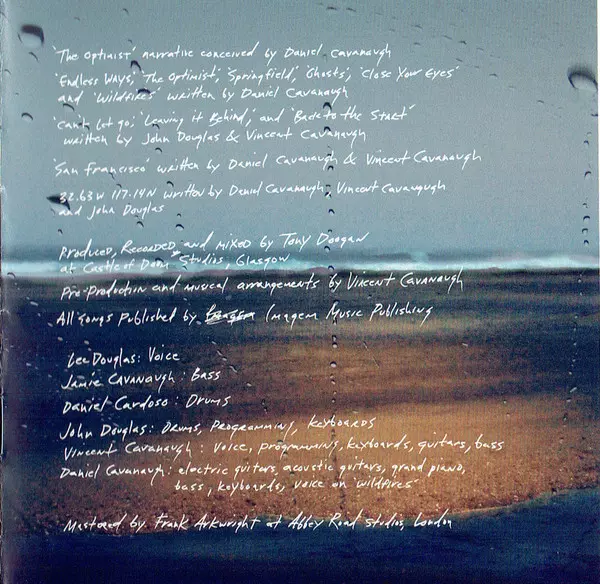 'The Optimist' narrative conceived by Daniel Cavanaugh
'Endless Ways,' 'The Optimist,' 'Springfield,' 'Ghosts', 'Close Your Eyes'
and 'Wildfires' written by Daniel Cavanaugh
'Can't Let Go,' 'Leaving it Behind,' and 'Back to the Start'
written by John Douglas & Vincent Cavanaugh
'San Francisco' written by Daniel Cavanaugh & Vincent Cavanaugh
32.63N 117.14W written by Daniel Cavanaugh, Vincent Cavanaugh
and John Douglas
Produced, Recorded, and mixed by Tony Doogan
at Castle of Doom Studios, Glasgow
Pre-Production and musical arrangements by Vincent Cavanaugh
All songs Published by Imagem Music Publishing
Lee Douglas: Voice
Jamie Cavanaugh: Bass
Daniel Cardoso: Drums
John Douglas: Drums, Programming, Keyboards
Vincent Cavanaugh: Voice, programming, keyboards, guitars, bass
Daniel Cavanaugh: electric guitars, acoustic guitars, grand piano,
bass, keyboards, voice on 'wildfires'
Mastered by Frank Arkwright at Abbey Road Studios, London